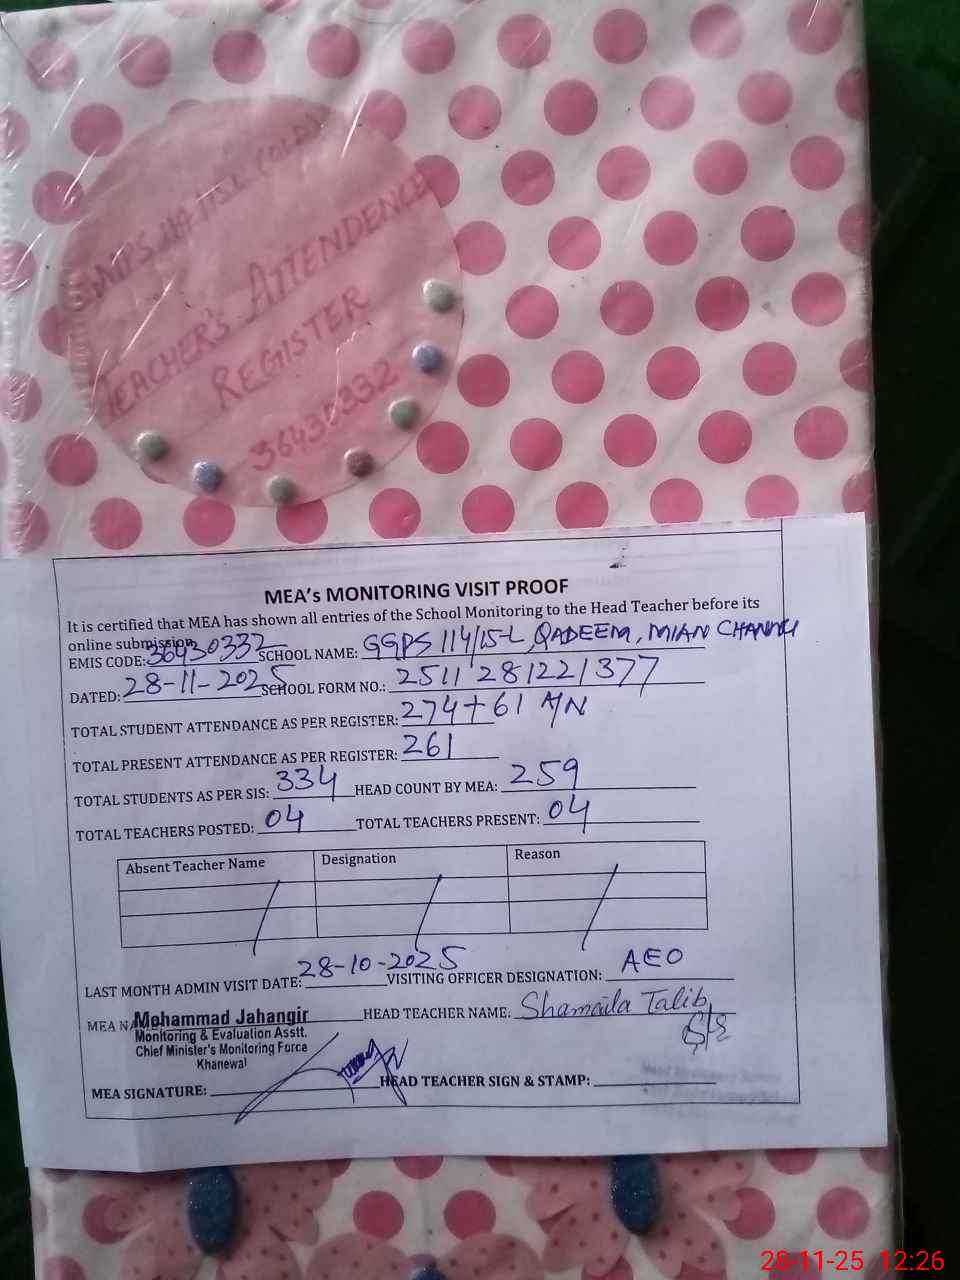 GMPS 114/15L (OLD)
TEACHER'S ATTENDENCE
REGISTER
36430332
MEA's MONITORING VISIT PROOF
It is certified that MEA has shown all entries of the School Monitoring to the Head Teacher before its
online submission.
EMIS CODE: 36430332 SCHOOL NAME: GGPS 114/15-L, QADEEM, MIAN CHANNU
DATED: 28-11-2025 SCHOOL FORM NO.: 2511281221377
TOTAL STUDENT ATTENDANCE AS PER REGISTER: 274+61 A/N
TOTAL PRESENT ATTENDANCE AS PER REGISTER: 261
TOTAL STUDENTS AS PER SIS: 334 HEAD COUNT BY MEA: 259
TOTAL TEACHERS POSTED: 04 TOTAL TEACHERS PRESENT: 04
Absent Teacher Name Designation Reason
LAST MONTH ADMIN VISIT DATE: 28-10-2025 VISITING OFFICER DESIGNATION: AEO
MEA NAME: Mohammad Jahangir HEAD TEACHER NAME: Shamaila Talib
Monitoring & Evaluation Asstt.
Chief Minister's Monitoring Force
Khanewal
MEA SIGNATURE: HEAD TEACHER SIGN & STAMP:
28-11-25 12:26